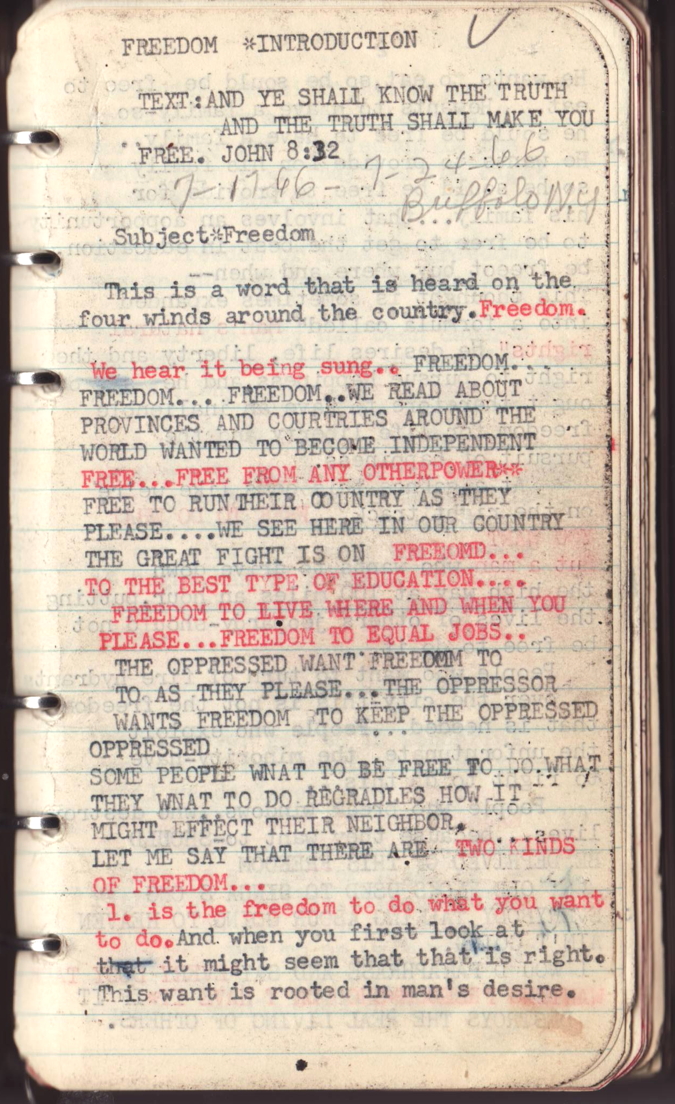 FREEDOM *INTRODUCTION
TEXT:AND YE SHALL KNOW THE TRUTH
AND THE TRUTH SHALL MAKE YOU
FREE. JOHN 8:32
7-17-66- 7-24-66
Buffalo NY
Subject*Freedom
This is a word that is heard on the
four winds around the country.Freedom.
We hear it being sung.. FREEDOM..
FREEDOM... FREEDOM..WE READ ABOUT
PROVINCES AND COURTRIES AROUND THE
WORLD WANTED TO BECOME INDEPENDENT
FREE...FREE FROM ANY OTHERPOWER**
FREE TO RUNTHEIR COUNTRY AS THEY
PLEASE....WE SEE HERE IN OUR COUNTRY
THE GREAT FIGHT IS ON FREEOMD...
TO THE BEST TYPE OF EDUCATION....
FREEDOM TO LIVE WHERE AND WHEN YOU
PLEASE...FREEDOM TO EQUAL JOBS..
THE OPPRESSED WANT FREEDOM TO
TO AS THEY PLEASE...THE OPPRESSOR
WANTS FREEDOM TO KEEP THE OPPRESSED
OPPRESSED
SOME PEOPLE WNAT TO BE FREE TO DO WHAT
THEY WNAT TO DO REGRADLES HOW IT
MIGHT EFFECT THEIR NEIGHBOR.
LET ME SAY THAT THERE ARE TWO KINDS
OF FREEDOM...
1. is the freedom to do what you want
to do.And when you first look at
that it might seem that that is right.
This want is rooted in man's desire.